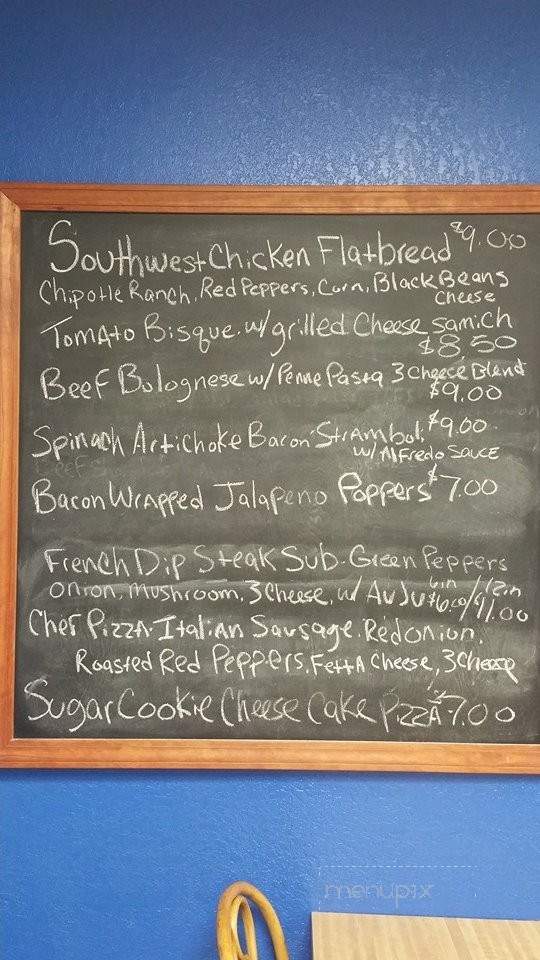 Southwest Chicken Flatbread $9.00
Chipotle Ranch, Red Peppers, Corn, Black Beans
Cheese
Tomato Bisque w/ grilled Cheese samich
$8.50
Beef Bolognese w/ Penne Pasta 3 Cheese Blend
$9.00
Spinach Artichoke Bacon Stramboli $9.00
w/ Alfredo Sauce
Bacon Wrapped Jalapeno Poppers $7.00
French Dip Steak Sub. Green Peppers
Onion, Mushroom, 3 Cheese, w/ Au Ju 6in $6.00/ 12in $11.00
Chef Pizza. Italian Sausage. Red onion.
Roasted Red Peppers. Fetta Cheese, 3 Cheese
Sugar Cookie Cheese Cake Pizza 7.00
menupix